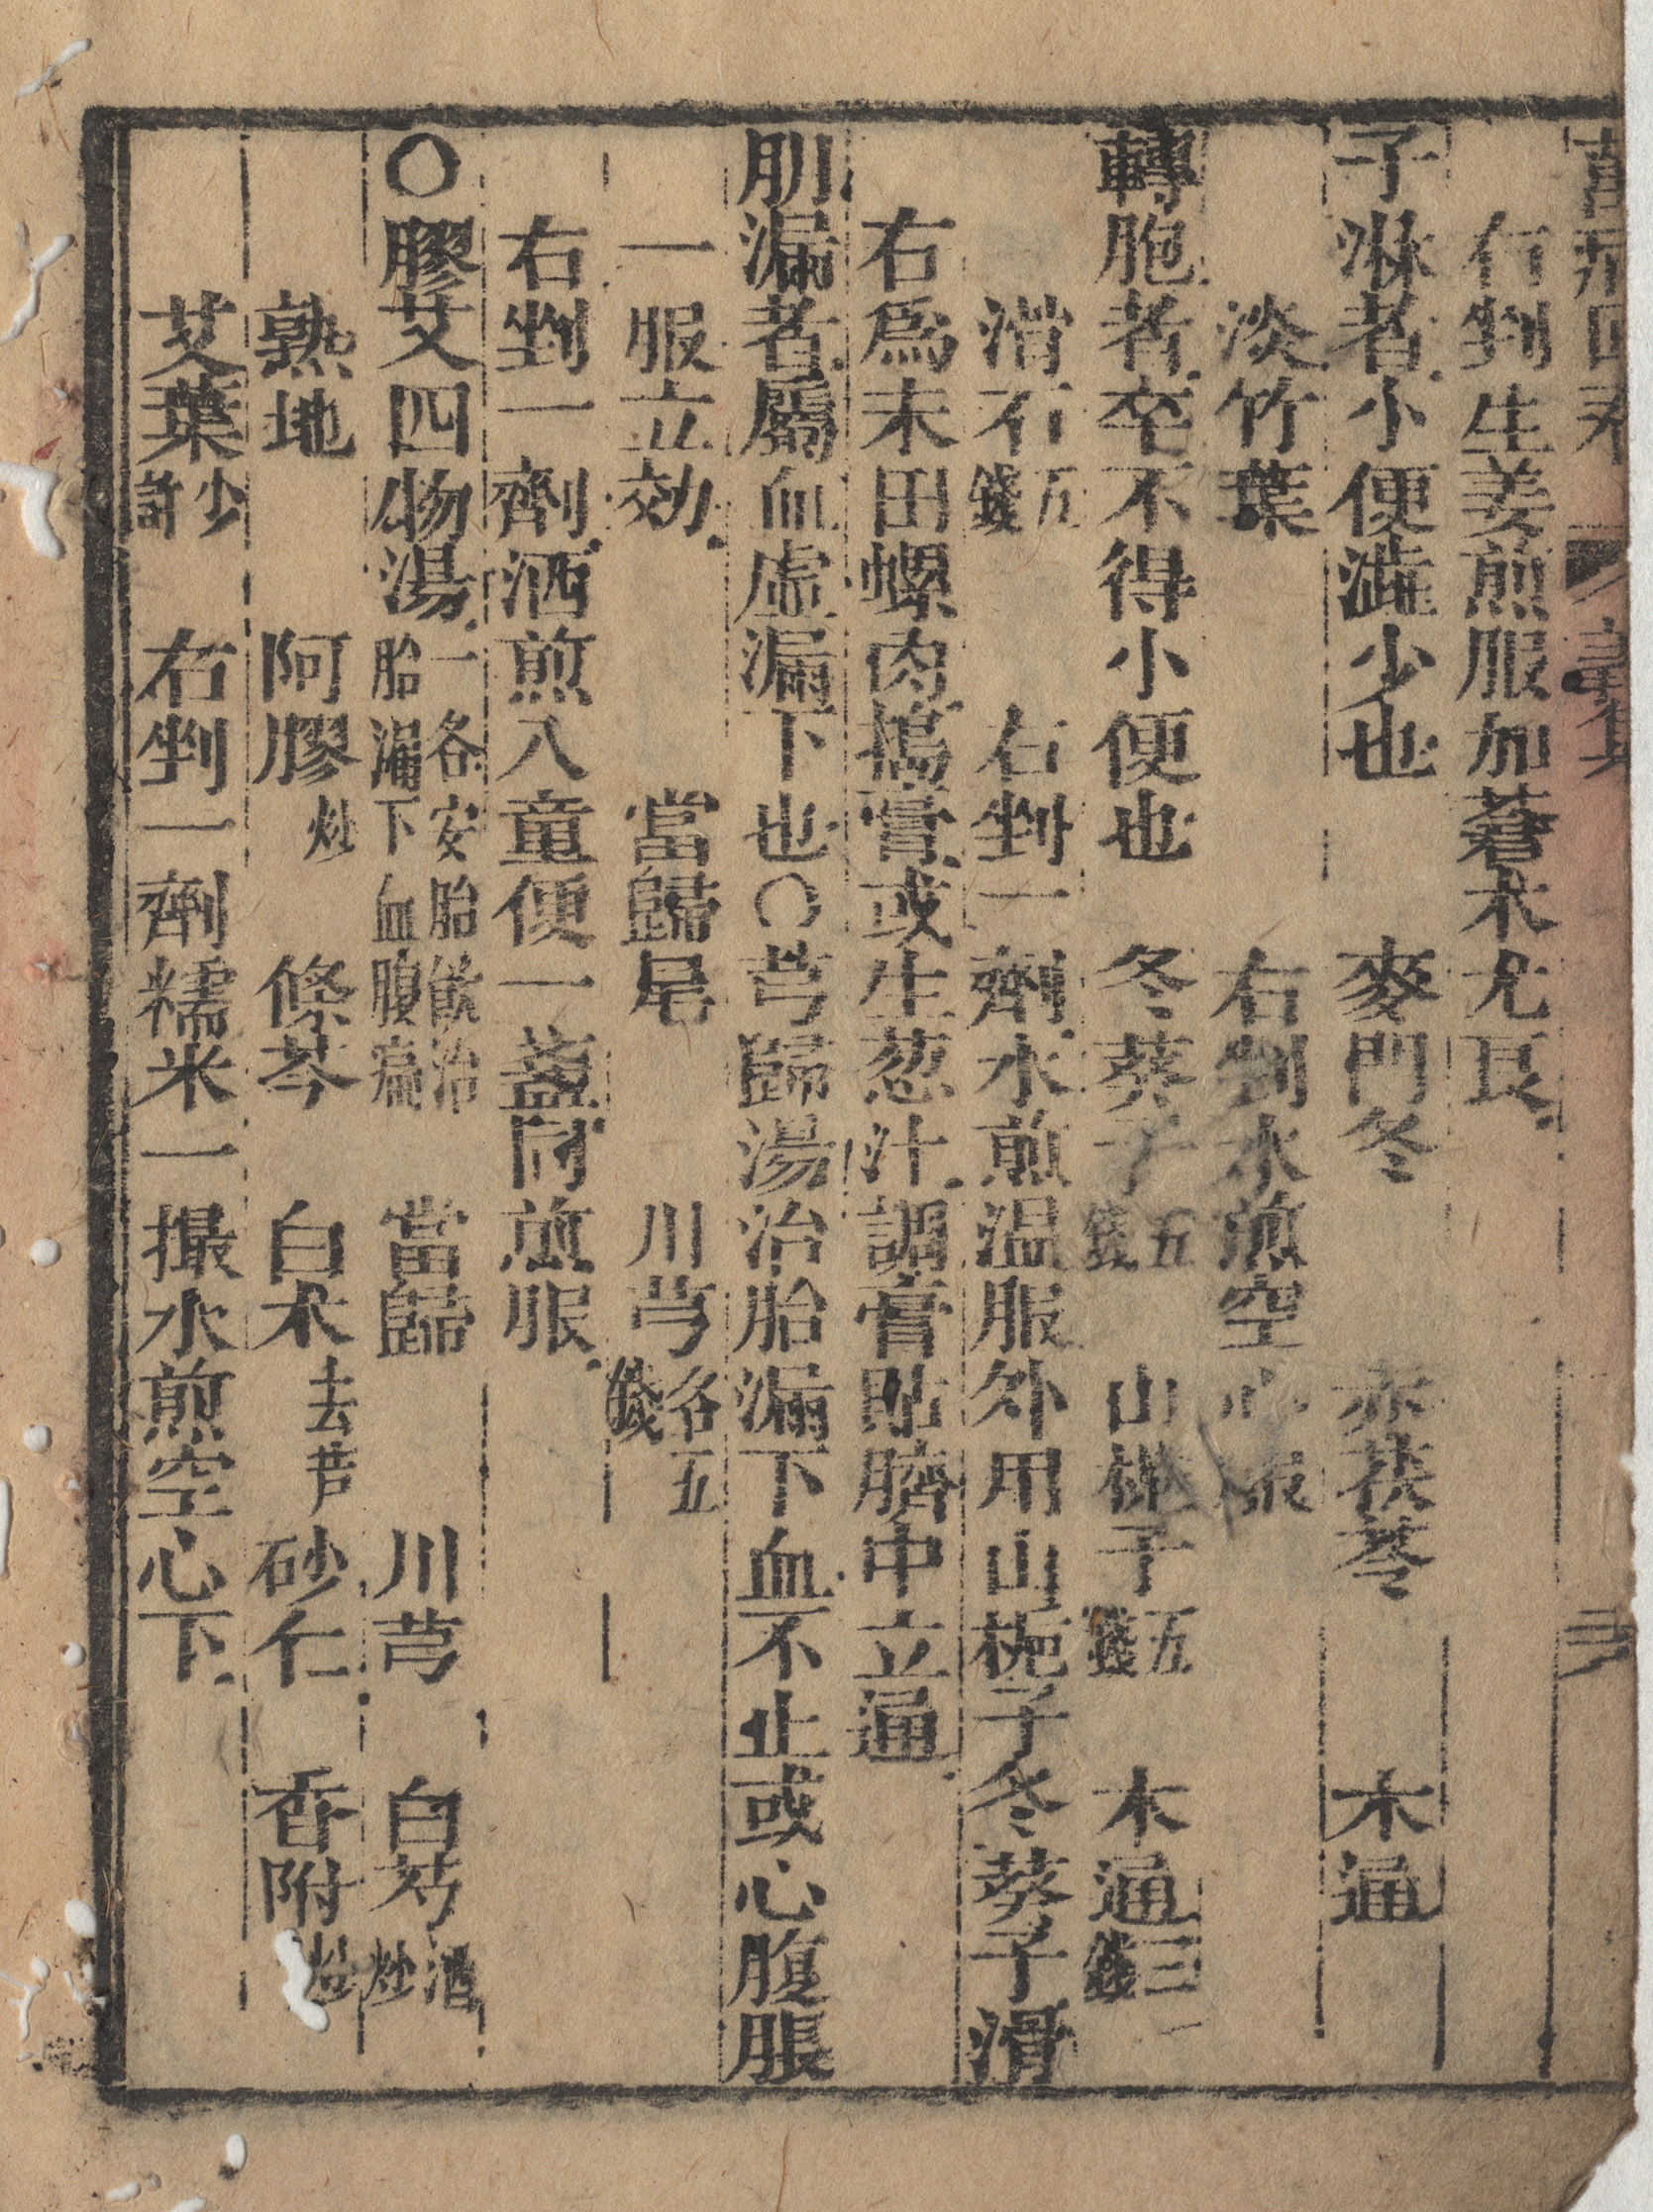 右剉生姜煎服加蒼朮尤良
子淋者小便澁少也 麥門冬 赤茯苓 木通
淡竹葉 右剉水煎空心服
轉胞者卒不得小便也 冬葵子五錢 山梔子五錢 木通三錢
滑石五錢 右剉一劑水煎温服外用山梔子冬葵子滑
右爲末田螺肉搗膏或生葱汁調膏貼臍中立通
胎漏者屬血虛漏下也○芎歸湯治胎漏下血不止或心腹脹
一服立効 當歸尾 川芎各五錢
右剉一劑酒煎入童便一盞同煎服
○膠艾四物湯一各安胎飲治胎漏下血腹痛 當歸 川芎 白芍酒炒
熟地 阿膠炒 條芩 白朮去芦 砂仁 香附炒
艾葉少許 右剉一劑糯米一撮水煎空心下